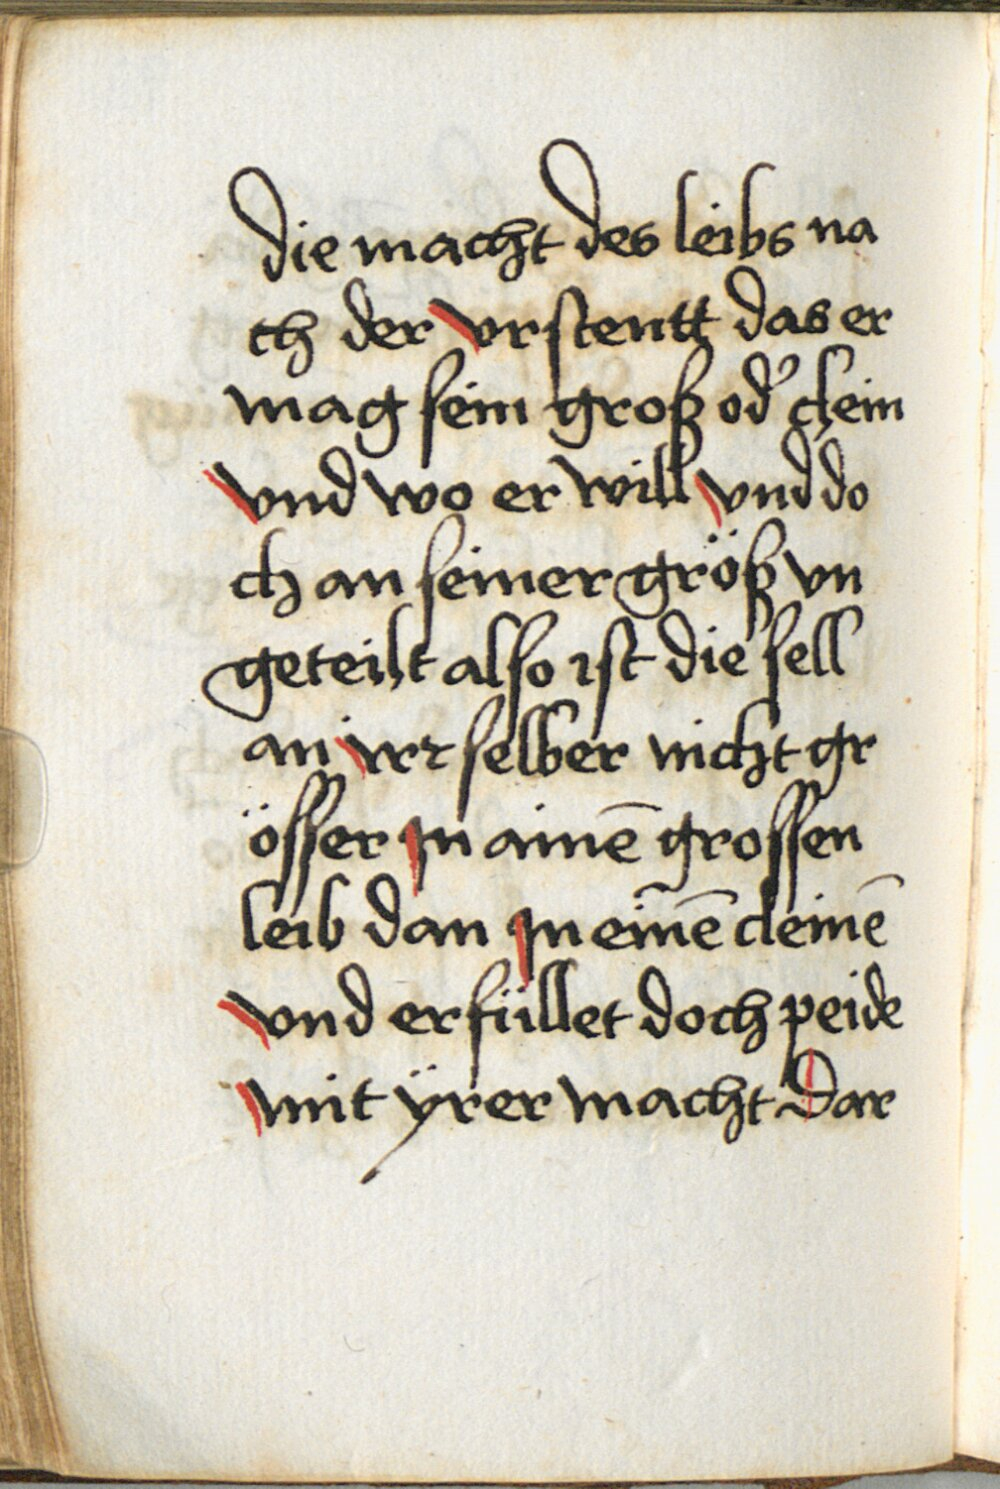 die macht des leibs na
ch der vrstentt das er
mag sein groß od' clein
vnd wo er will vnd do
ch an seiner größ vn
geteilt also ist die sell
an irr selber nicht gr
össer jn ainē grossen
leib dan jn einē cleinē
vnd erfüllet doch peide
mit ÿrer macht Dar